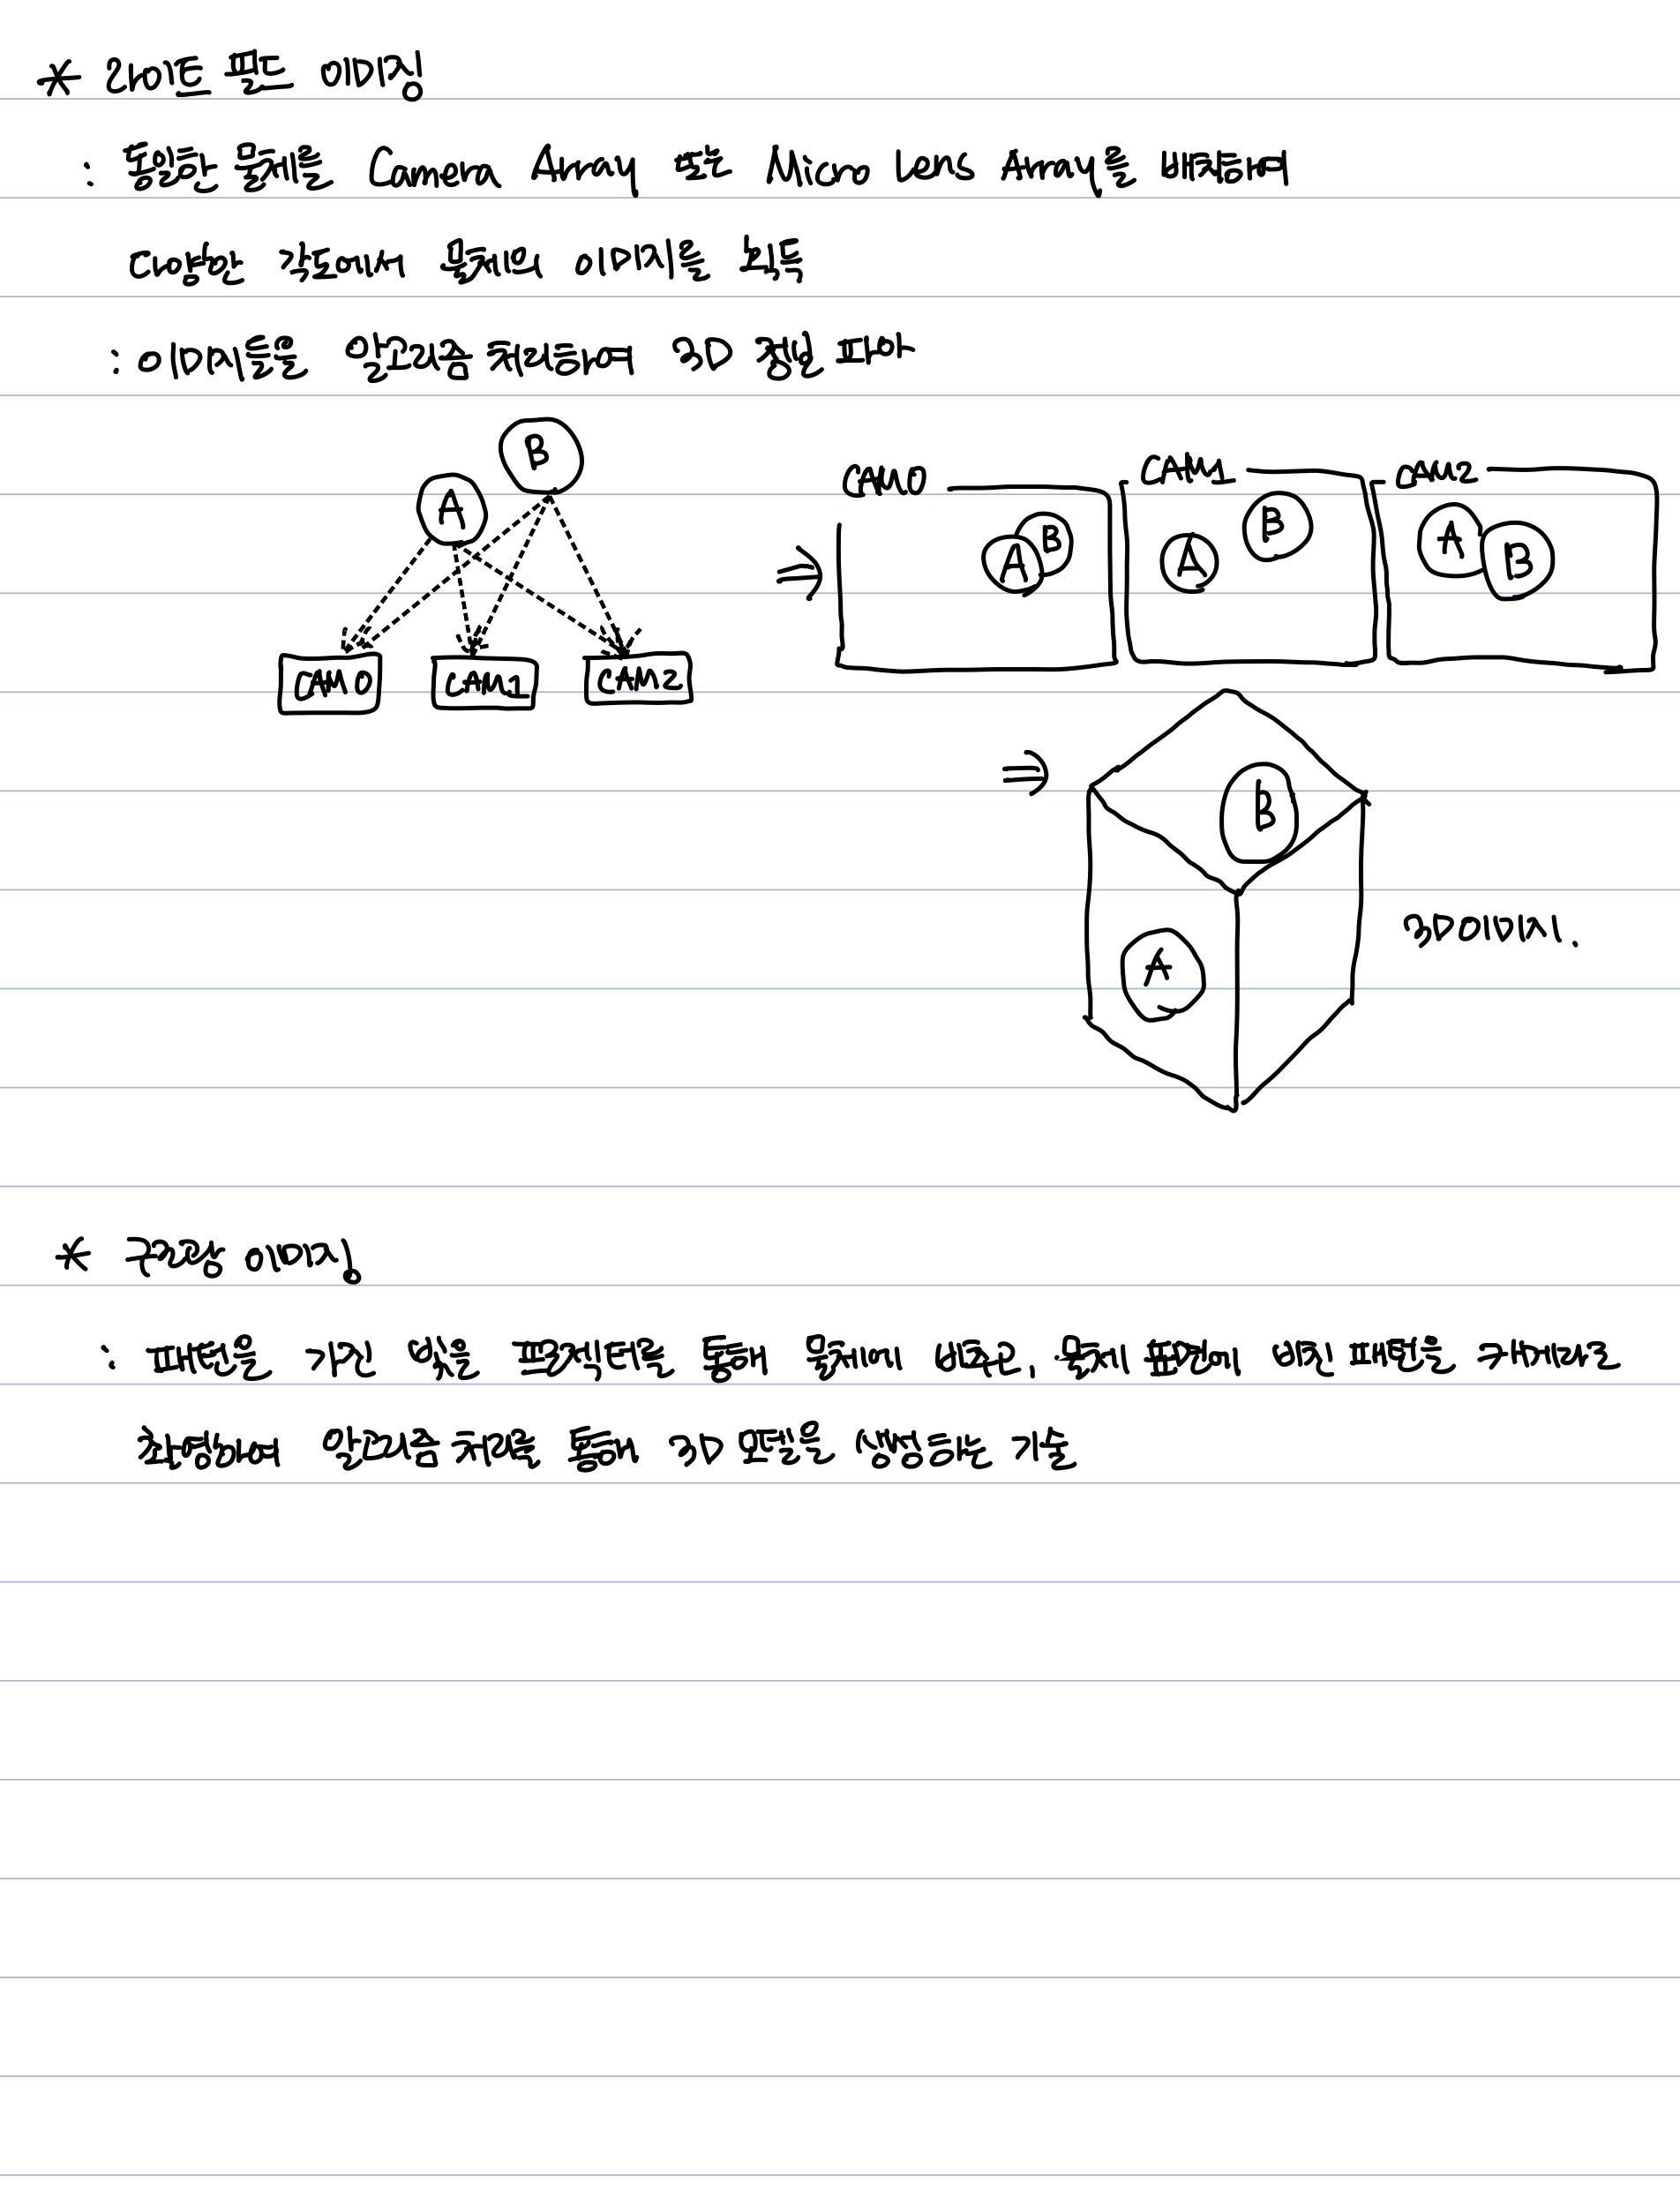 * 라이트 필드 이미징
: 동일한 물체를 Camera Array 또는 Micro Lens Array를 배치하여
다양한 각도에서 물체의 이미지를 획득
: 이미지들을 알고리즘 처리하여 3D 정보 파악
B
A
CAM0
CAM1
CAM2
⇒
CAM0
A
B
CAM1
A
B
CAM2
A
B
⇒
B
A
3D이미지.
* 구조광 이미징
: 패턴을 가진 빛을 프로젝터를 통해 물체에 비추고, 물체 표면에 비친 패턴을 카메라로
촬영하여 알고리즘 처리를 통해 3D 모델을 생성하는 기술